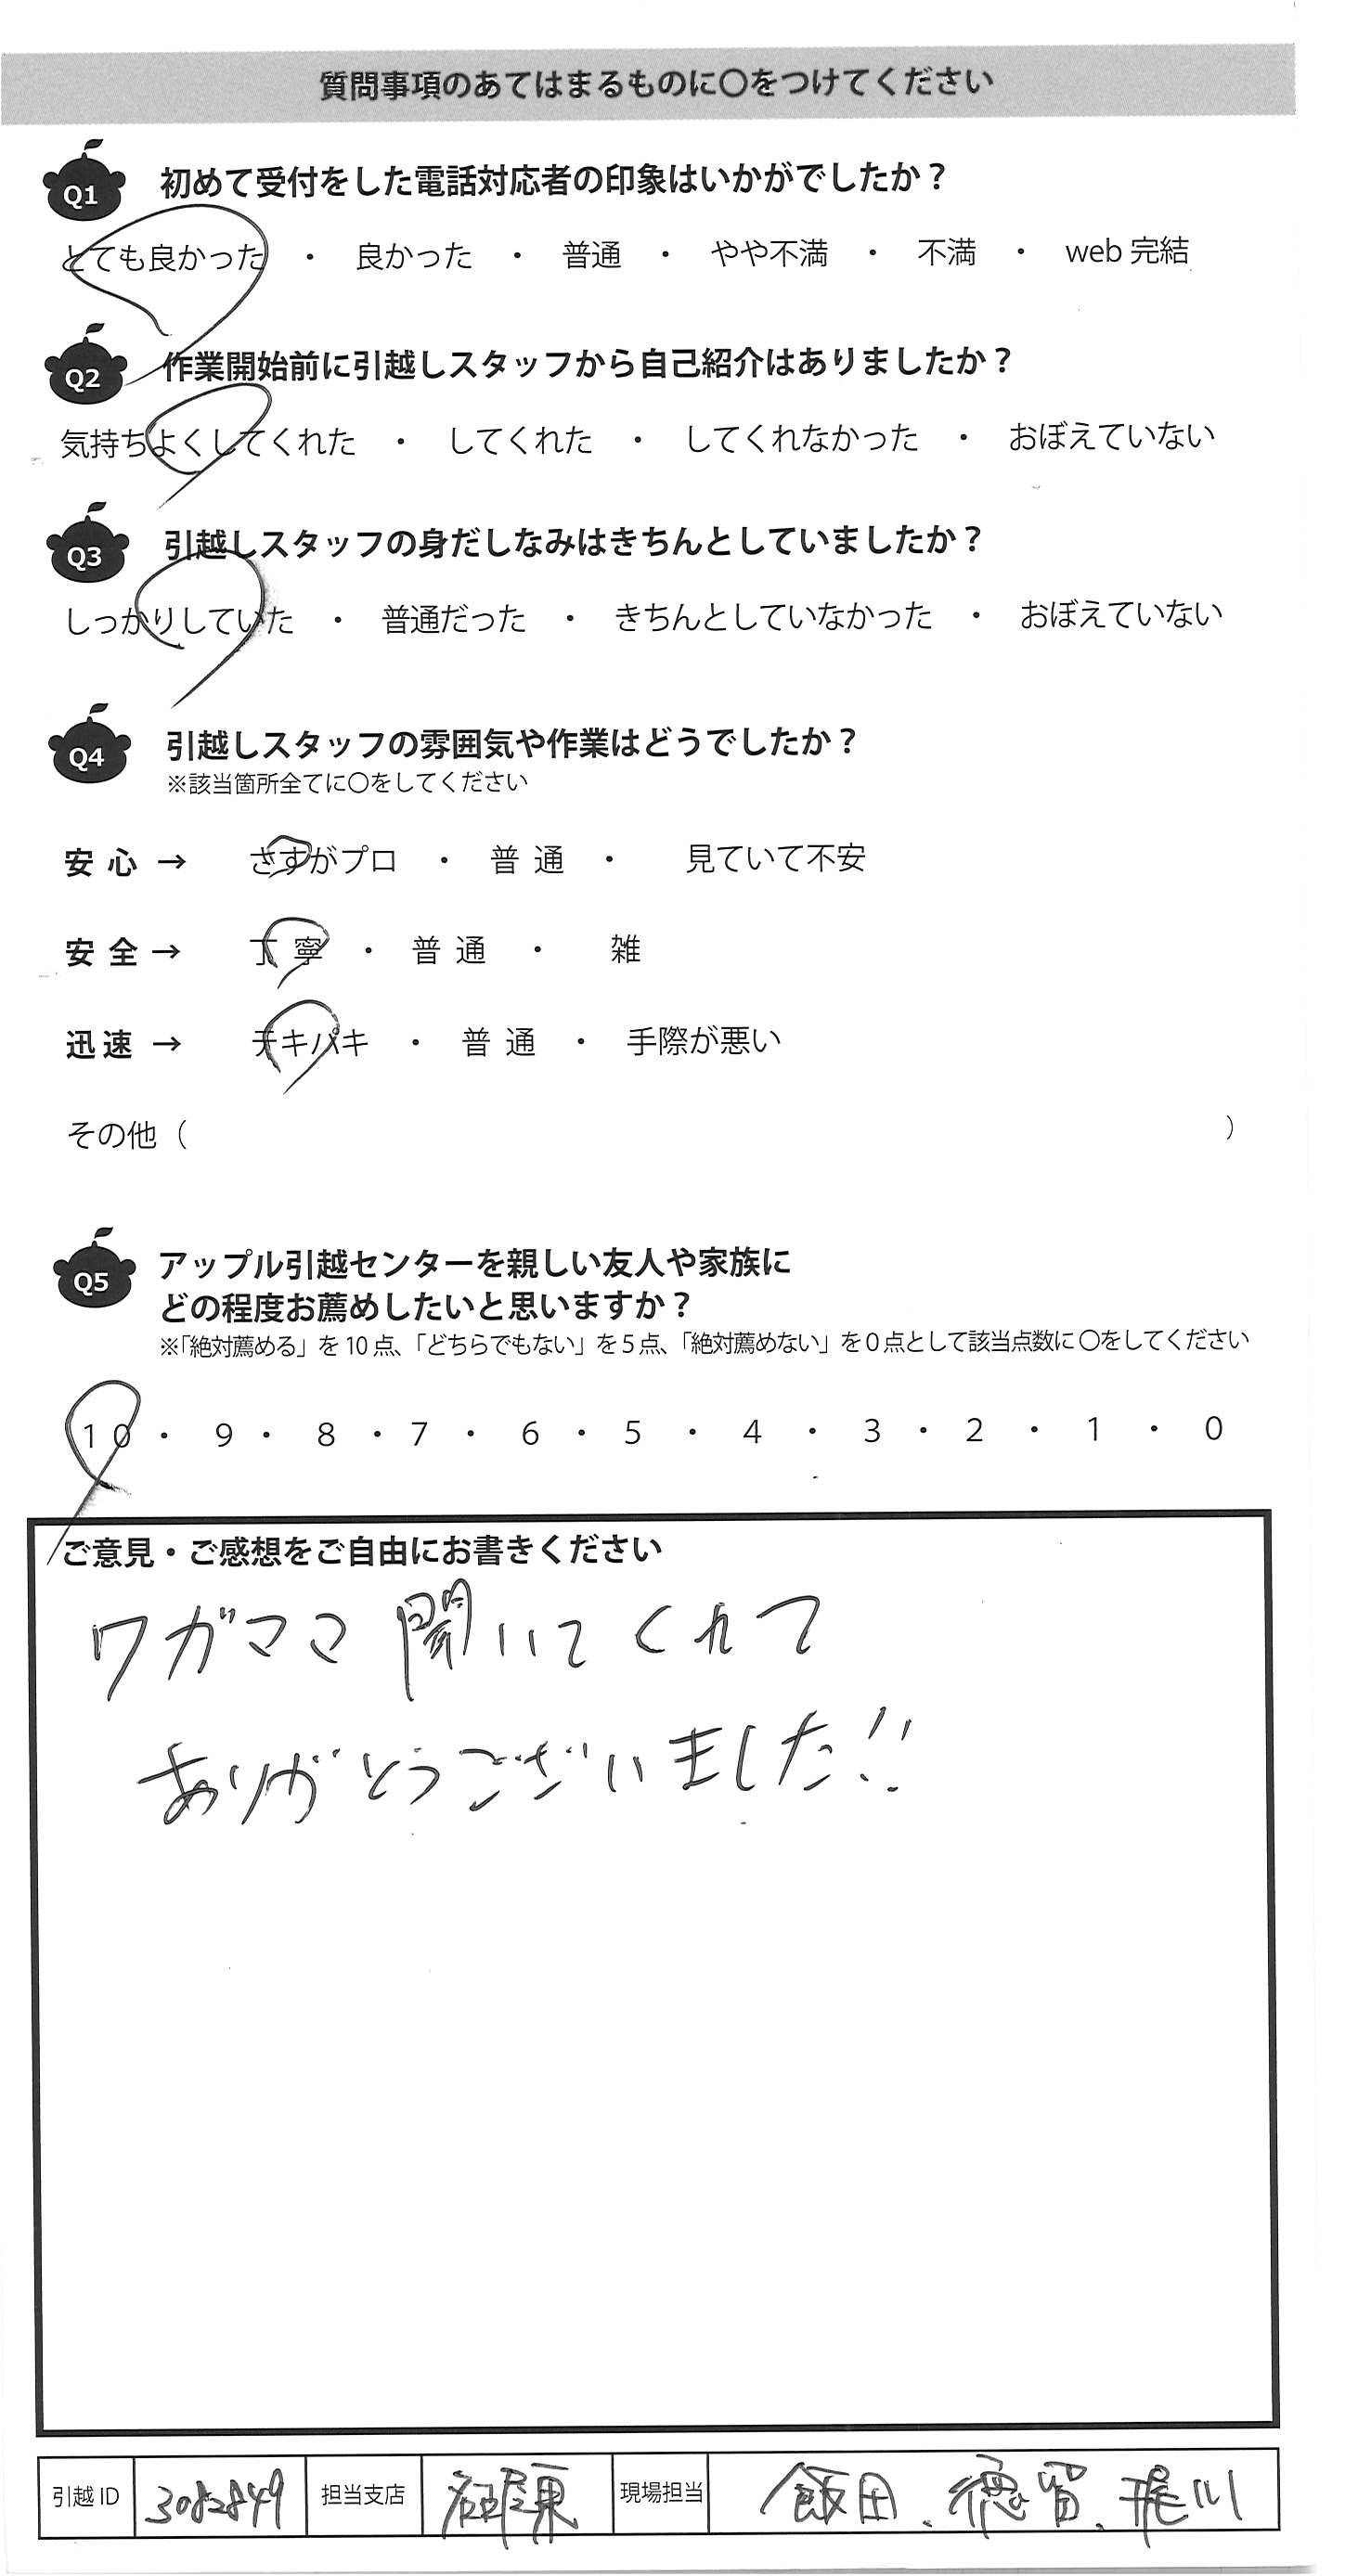 質問事項のあてはまるものに〇をつけてください
Q1 初めて受付をした電話対応者の印象はいかがでしたか？
とても良かった ・ 良かった ・ 普通 ・ やや不満 ・ 不満 ・ web 完結
Q2 作業開始前に引越しスタッフから自己紹介はありましたか？
気持ちよくしてくれた ・ してくれた ・ してくれなかった ・ おぼえていない
Q3 引越しスタッフの身だしなみはきちんとしていましたか？
しっかりしていた ・ 普通だった ・ きちんとしていなかった ・ おぼえていない
Q4 引越しスタッフの雰囲気や作業はどうでしたか？
※該当箇所全てに〇をしてください
安心 → さすがプロ ・ 普通 ・ 見ていて不安
安全 → 丁寧 ・ 普通 ・ 雑
迅速 → テキパキ ・ 普通 ・ 手際が悪い
その他（ ）
Q5 アップル引越センターを親しい友人や家族に
どの程度お薦めしたいと思いますか？
※「絶対薦める」を 10 点、「どちらでもない」を 5 点、「絶対薦めない」を 0 点として該当点数に 〇をしてください
10 ・ 9 ・ 8 ・ 7 ・ 6 ・ 5 ・ 4 ・ 3 ・ 2 ・ 1 ・ 0
ご意見・ご感想をご自由にお書きください
ワガママ聞いてくれて
ありがとうございました!!
引越 ID 3082849 担当支店 名古屋東 現場担当 飯田、徳留、梶川